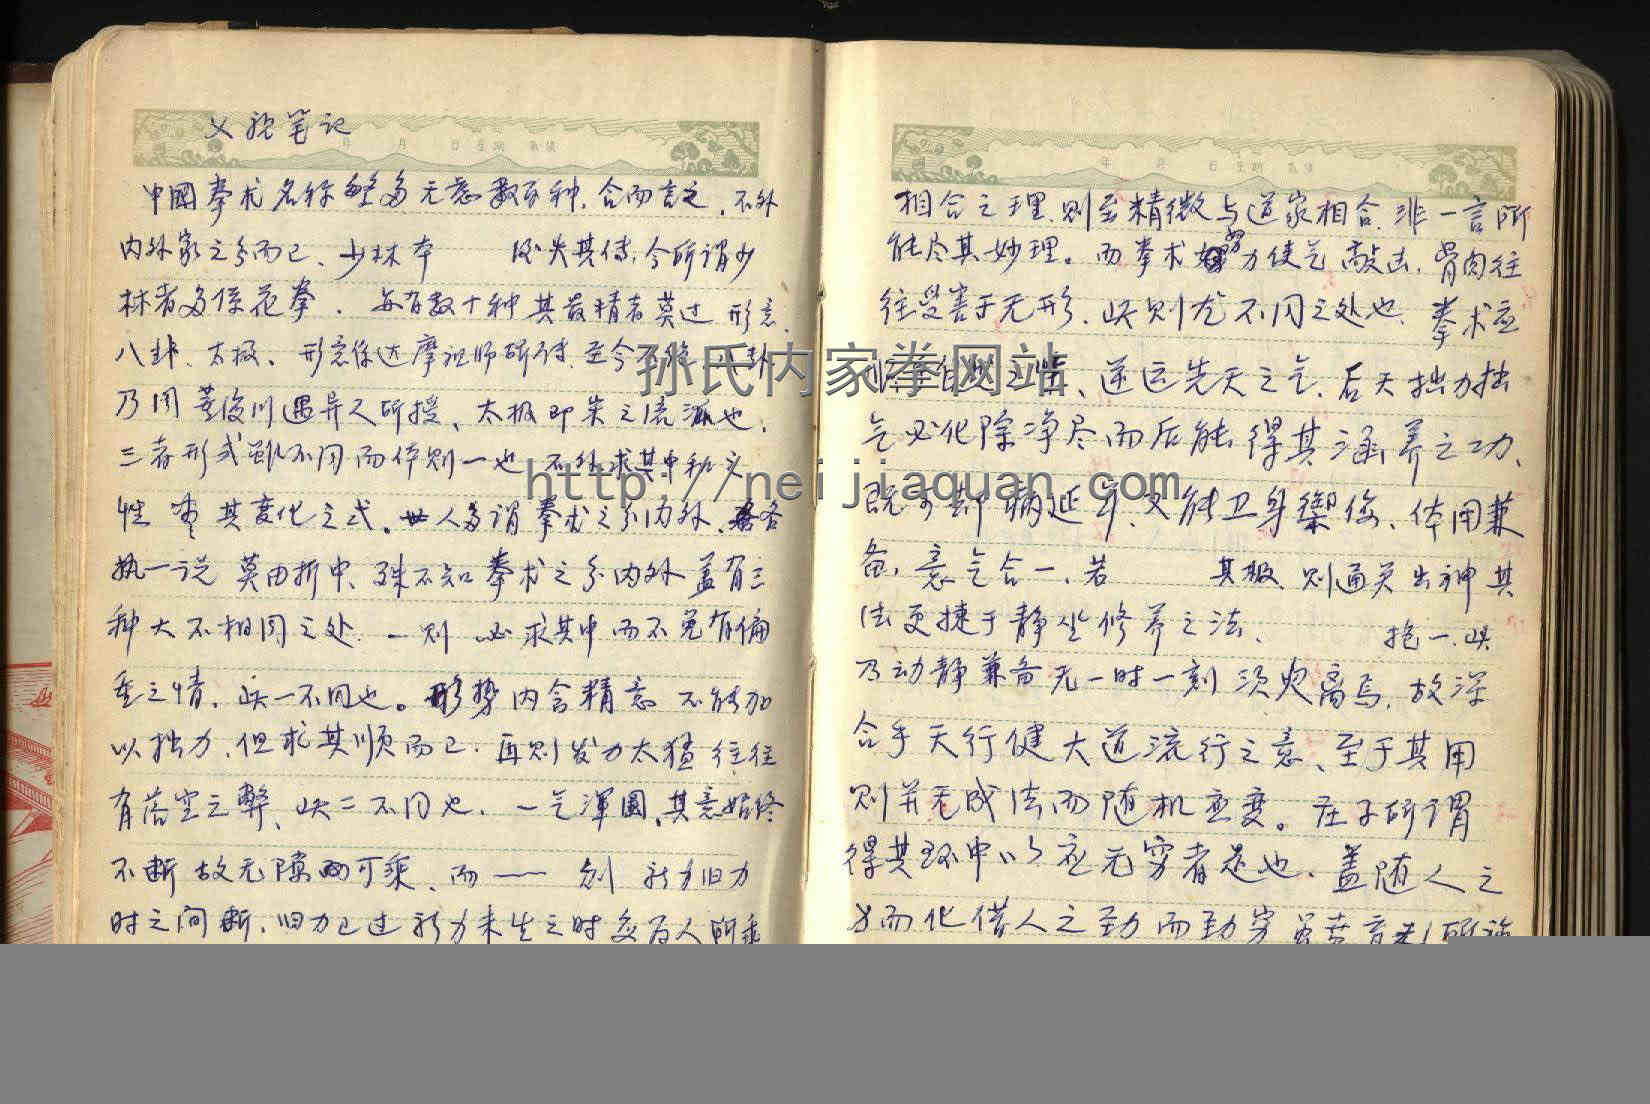 笔记
中國拳术名称繁多无虑数百种，合而言之，不外
内外家之分而已、少林本 失其传，今所谓少
林者多係花拳． 每有数十种其最精者莫过 形意、
八卦、太极、形意係达摩祖师所 至今不 八卦
乃同 董海川遇异人所授、太极即 之流派也、
三者形式雖不同而体则一也 不外求其中
性 其变化之式。世人多谓拳术之分内外、各
执一说 莫由折中、殊不知拳术之分内外盖有三
种大不相同之处． 一则 必求其中而不免有偏
重之情．此一不同也。形势内含精意 不能加
以拙力．但求其顺而已．再则发力太猛往往
有落空之弊、此二不同也．一气浑圆、其意始终
不断故无隙可乘、而 则 新力旧力
时之间断．旧力已过新力未生之时 为人所乘
年 月 日 星期 气候
相合之理．则至精微与道家相合．非一言所
能尽其妙理。而拳术努力使气敲击，骨肉往
往受害于无形．此则尤不同之处也．拳术应
自然之 、逆运先天之气．后天拙力拙
气必化除净尽而后能得其涵养之功、
既可却病延年、又能卫身禦侮、体用兼
备，意气合一、若 其极、则通灵出神其
法更捷于静坐修养之法． 抱一．此
乃动静兼备无一时一刻须臾离焉．故深
合乎天行健大道流行之意、至于其用
则并无成法而随机应变。庄子所谓
得其环中以应无穷者是也．盖随人之
力而化借人之劲而劲穷
孙氏内家拳网站
http://neijiaquan.com